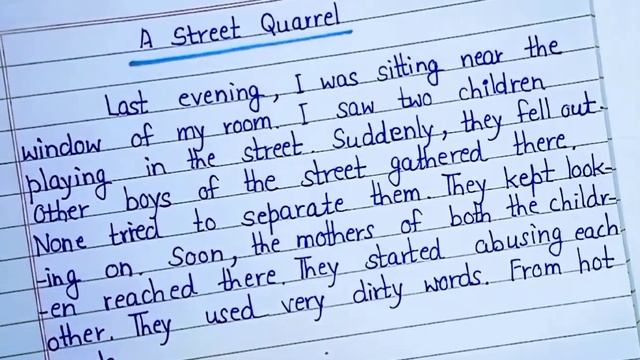 A Street Quarrel
Last evening, I was sitting near the
window of my room. I saw two children
playing in the street. Suddenly, they fell out.
Other boys of the street gathered there.
None tried to separate them. They kept look-
-ing on. Soon, the mothers of both the childr-
-en reached there. They started abusing each
other. They used very dirty words. From hot